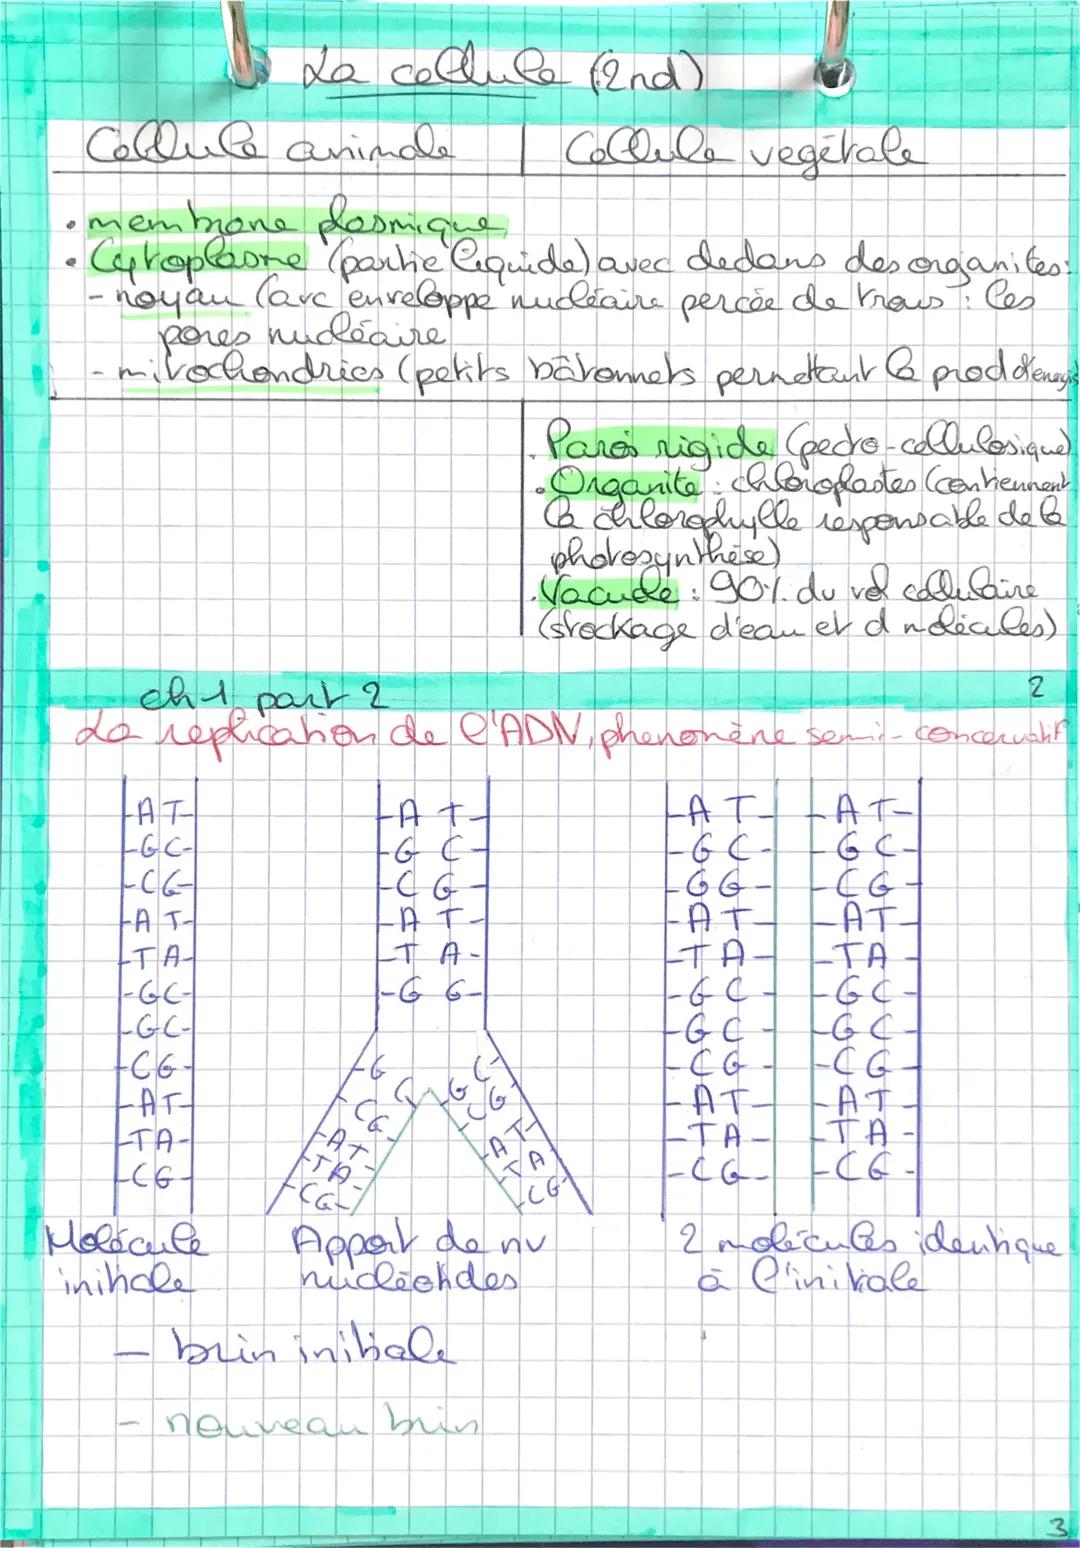 La cellule (2nd)
Cellule animale | Cellule vegétale
• membrane plasmique
• Cytoplasme (partie liquide) avec dedans des organites:
- noyau (avc enveloppe nucléaire percée de trous : les
pores nucléaire
- mitochondries (petits bâtonnets permettant la prod d'énergie
. Paroi rigide (pecto-cellulosique)
. Organite : chloroplastes (contiennent
la chlorophylle responsable de la
photosynthèse)
. Vacuole : 90% du vol cellulaire
(stockage d'eau et d molécules)
2
ch 1 part 2
La replication de l'ADN, phenomène semi-concervatif
-A T-
-G C-
-C G-
-A T-
-T A-
-G C-
-G C-
-C G-
-A T-
-T A-
-C G-
-A T-
-G C-
-C G-
-A T-
-T A-
-G G-
-G C
C G-
-A T-
-T A-
-C G-
G C-
C G-
-A T-
-T A-
-C G-
-A T-
-G C-
-G G-
-A T-
-T A-
-G C-
-G C-
-C G-
-A T-
-T A-
-C G-
-A T-
-G C-
-C G-
-A T-
-T A-
-G C-
-G C-
-C G-
-A T-
-T A-
-C G-
Molécule
initiale
Apport de nv
nucléotides
2 molécules identique
à l'initiale
- brin initiale
- nouveau brin
3